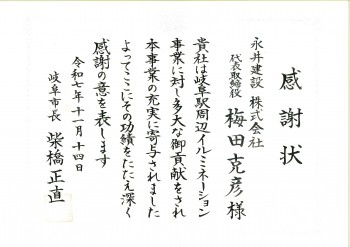 感謝状
永井建設 株式会社
代表取締役 梅田克彦 様
貴社は岐阜駅周辺イルミネーション
事業に対し多大な御貢献をされ
本事業の充実に寄与されました
よってここにその功績をたたえ深く
感謝の意を表します
令和七年十一月十四日
岐阜市長 柴橋正直